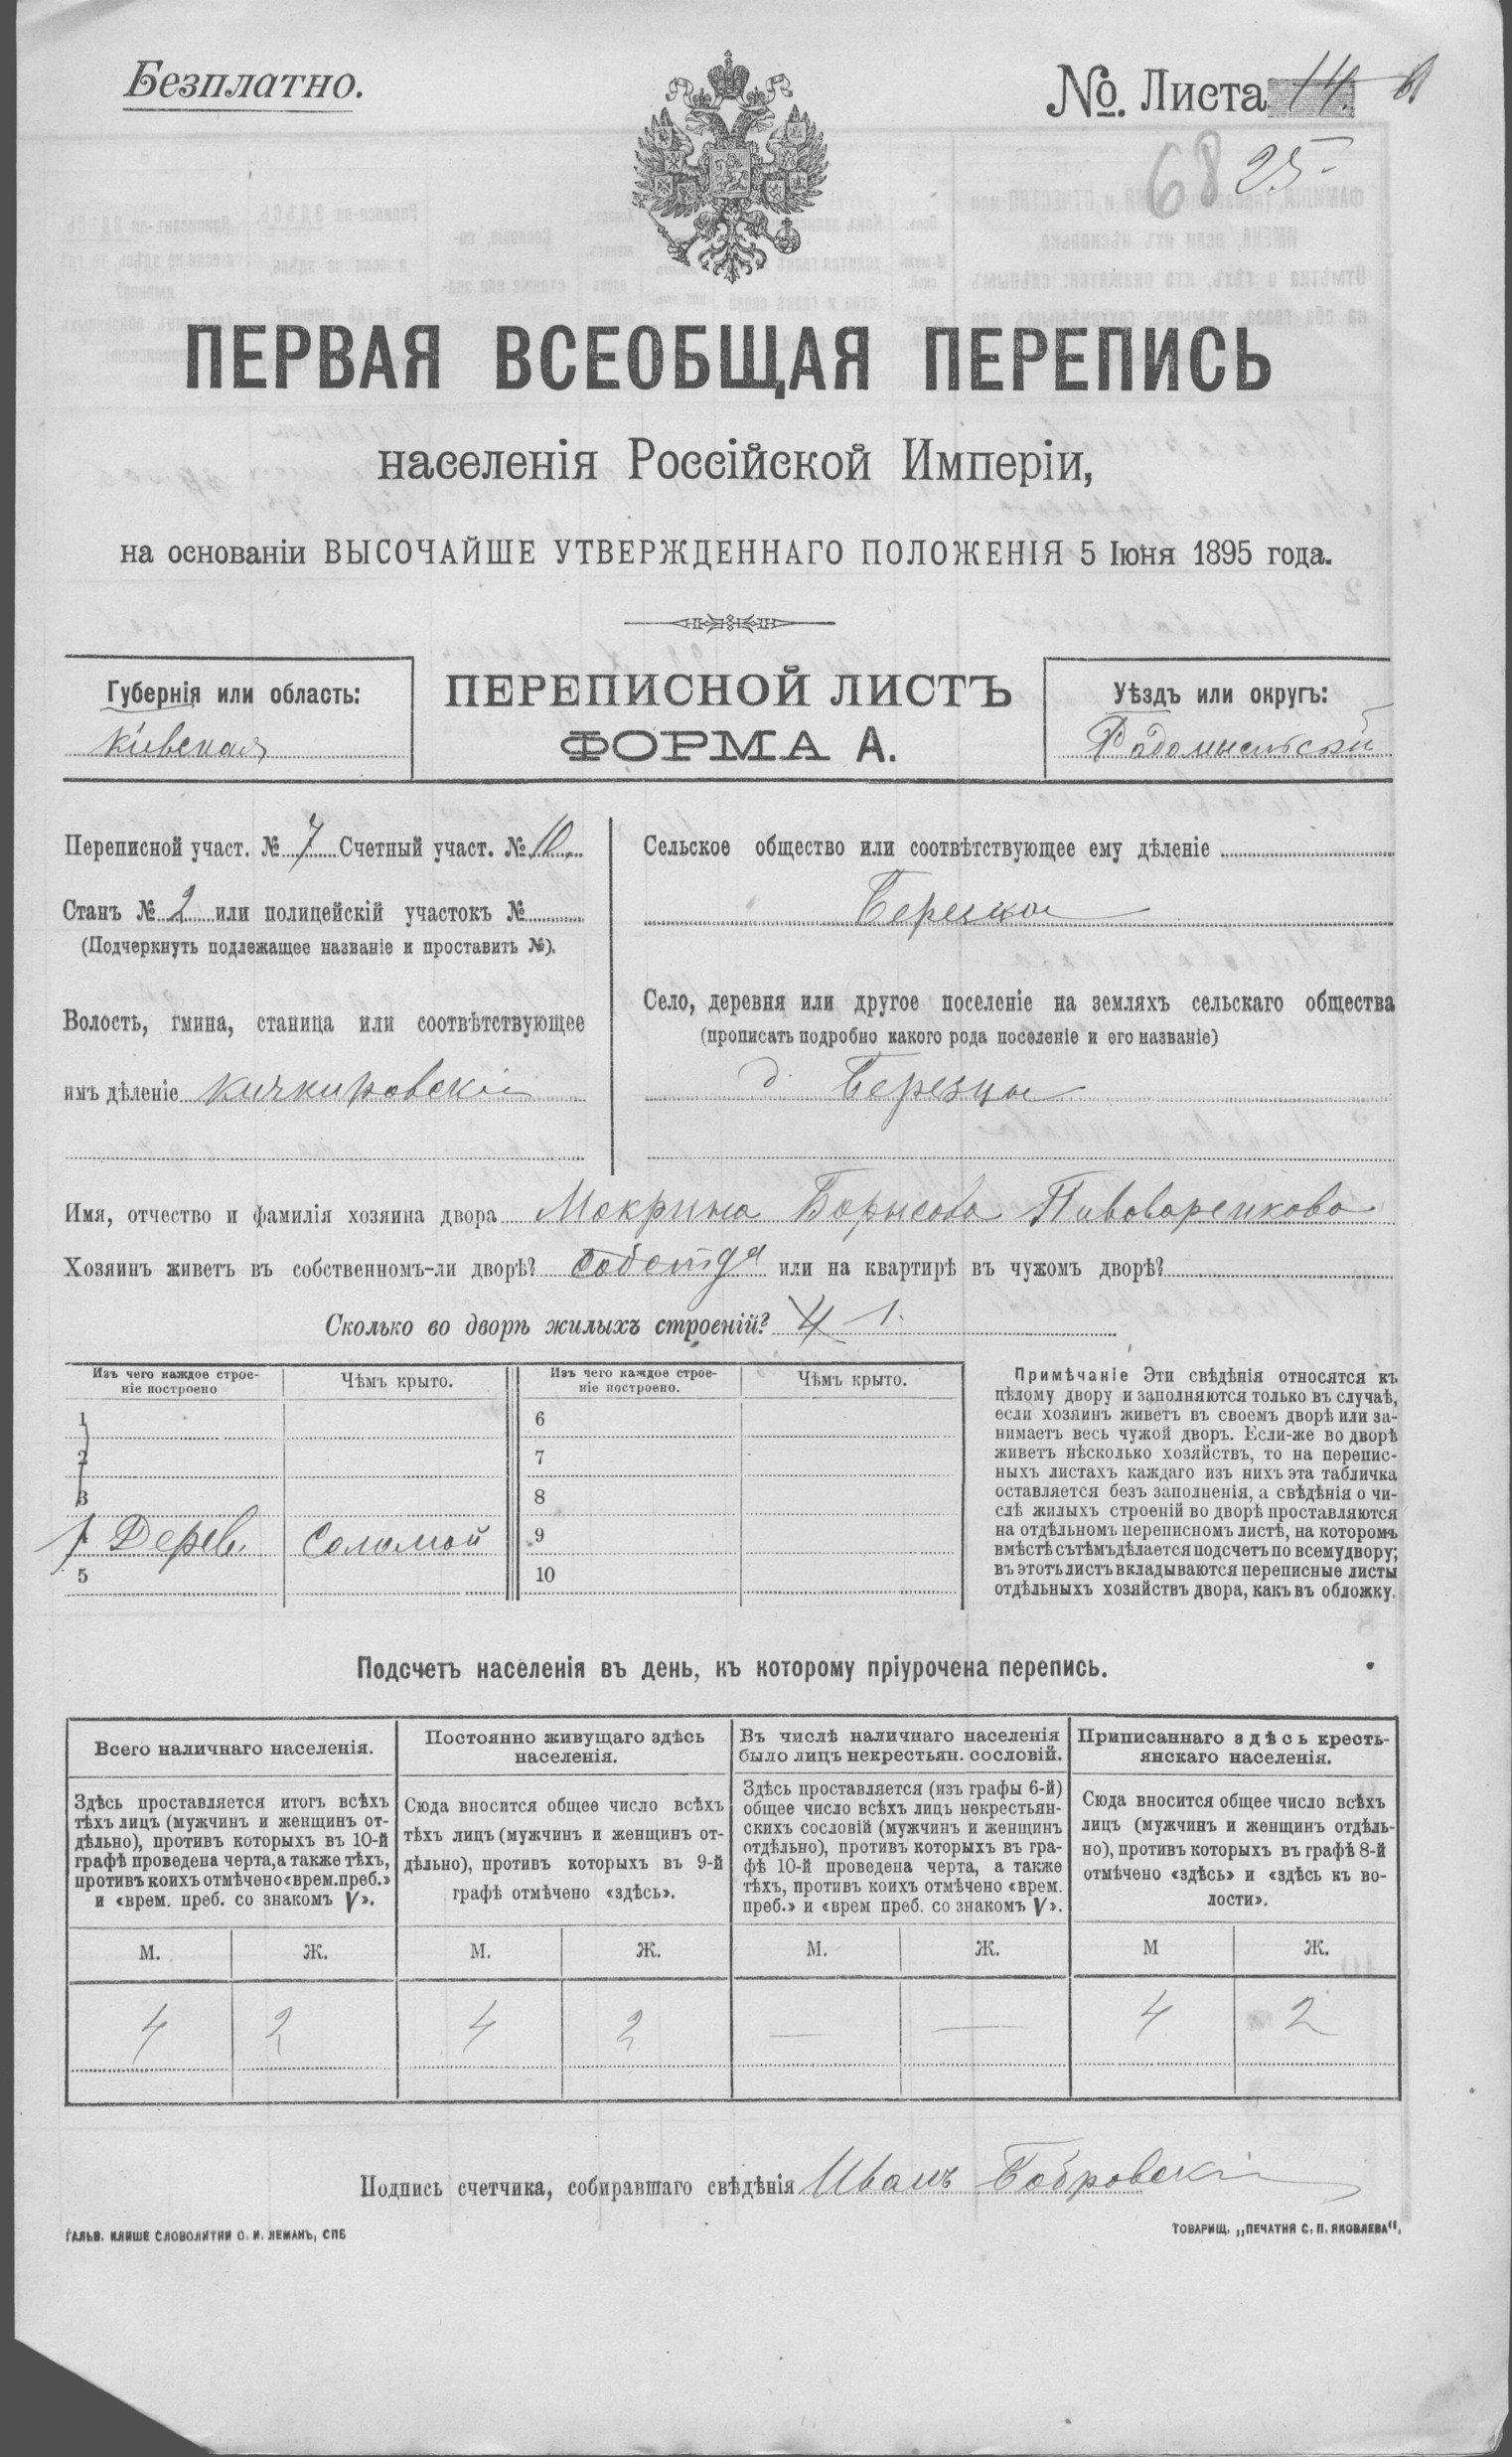 Безплатно.
№. Листа 14.
68 25
ПЕРВАЯ ВСЕОБЩАЯ ПЕРЕПИСЬ
населенія Россійской Имперіи,
на основаніи ВЫСОЧАЙШЕ УТВЕРЖДЕННАГО ПОЛОЖЕНІЯ 5 Іюня 1895 года.
Губернія или область:
Кіевская
ПЕРЕПИСНОЙ ЛИСТЪ
ФОРМА А.
Уѣздъ или округъ:
Радомысльскій
Переписной участ. № 7 Счетный участ. № 10
Станъ № 2 или полицейскій участокъ №
(Подчеркнуть подлежащее названіе и проставить №).
Волость, гмина, станица или соотвѣтствующее
имъ дѣленіе Кичкировскій
Сельское общество или соотвѣтствующее ему дѣленіе
Село, деревня или другое поселеніе на земляхъ сельскаго общества
(прописать подробно какого рода поселеніе и его названіе)
д. Березцы
Имя, отчество и фамилія хозяина двора Мокрина Борысова Пивоваренкова
Хозяинъ живетъ въ собственномъ-ли дворѣ? или на квартирѣ въ чужомъ дворѣ?
Сколько во дворѣ жилыхъ строеній? 4 1.
Изъ чего каждое строе-
ніе построено
Чѣмъ крыто.
Изъ чего каждое строе-
ніе построено.
Чѣмъ крыто.
1
2
3
1 Дерев. Соломой
5
6
7
8
9
10
Примѣчаніе Эти свѣдѣнія относятся къ
цѣлому двору и заполняются только въ случаѣ,
если хозяинъ живетъ въ своемъ дворѣ или за-
нимаетъ весь чужой дворъ. Если-же во дворѣ
живетъ нѣсколько хозяйствъ, то на перепис-
ныхъ листахъ каждаго изъ нихъ эта табличка
оставляется безъ заполненія, а свѣдѣнія о чи-
слѣ жилыхъ строеній во дворѣ проставляются
на отдѣльномъ переписномъ листѣ, на которомъ
вмѣстѣ съ тѣмъ дѣлается подсчетъ по всему двору;
въ этотъ листъ вкладываются переписные листы
отдѣльныхъ хозяйствъ двора, какъ въ обложку.
Подсчетъ населенія въ день, къ которому пріурочена перепись.
Всего наличнаго населенія.
Постоянно живущаго здѣсь
населенія.
Въ числѣ наличнаго населенія
было лицъ некрестьян. сословій.
Приписаннаго здѣсь кресть-
янскаго населенія.
Здѣсь проставляется итогъ всѣхъ
тѣхъ лицъ (мужчинъ и женщинъ от-
дѣльно), противъ которыхъ въ 10-й
графѣ проведена черта, а также тѣхъ,
противъ коихъ отмѣчено «врем. преб.»
и «врем. преб. со знакомъ V».
Сюда вносится общее число всѣхъ
тѣхъ лицъ (мужчинъ и женщинъ от-
дѣльно), противъ которыхъ въ 9-й
графѣ отмѣчено «здѣсь».
Здѣсь проставляется (изъ графы 6-й)
общее число всѣхъ лицъ некрестьян-
скихъ сословій (мужчинъ и женщинъ
отдѣльно), противъ которыхъ въ гра-
фѣ 10-й проведена черта, а также
тѣхъ, противъ коихъ отмѣчено «врем.
преб.» и «врем преб. со знакомъ V».
Сюда вносится общее число всѣхъ
лицъ (мужчинъ и женщинъ отдѣль-
но), противъ которыхъ въ графѣ 8-й
отмѣчено «здѣсь» и «здѣсь къ во-
лости».
М. Ж. М. Ж. М. Ж. М Ж.
4 2 4 2 — — 4 2
Подпись счетчика, собиравшаго свѣдѣнія Иванъ Бобровскій
ГАЛЬВ. КЛИШЕ СЛОВОЛИТНИ О. И. ЛЕМАНЪ, СПБ
ТОВАРИЩ. „ПЕЧАТНЯ С. П. ЯКОВЛЕВА“.